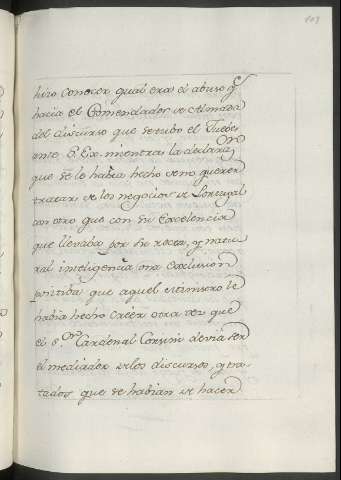 103
hizo conocer qual era el abuso q̃
hacia el Comendador de Almada
del discurso que se tubo el Jueves
con S. Ex. mientras la declarazⁿ
que se le habia hecho de no querer
tratar de los negocios de Portugal
con otro que con Su Excelencia
que llevaba por su recta, y natu-
ral inteligencia una exclusion
que aquel estimsero le
habia hecho creer otra vez que
el S.ᵒʳ Cardenal Corsini devia ser
el mediador de los discursos, y tra-
tados que se habian de hacer